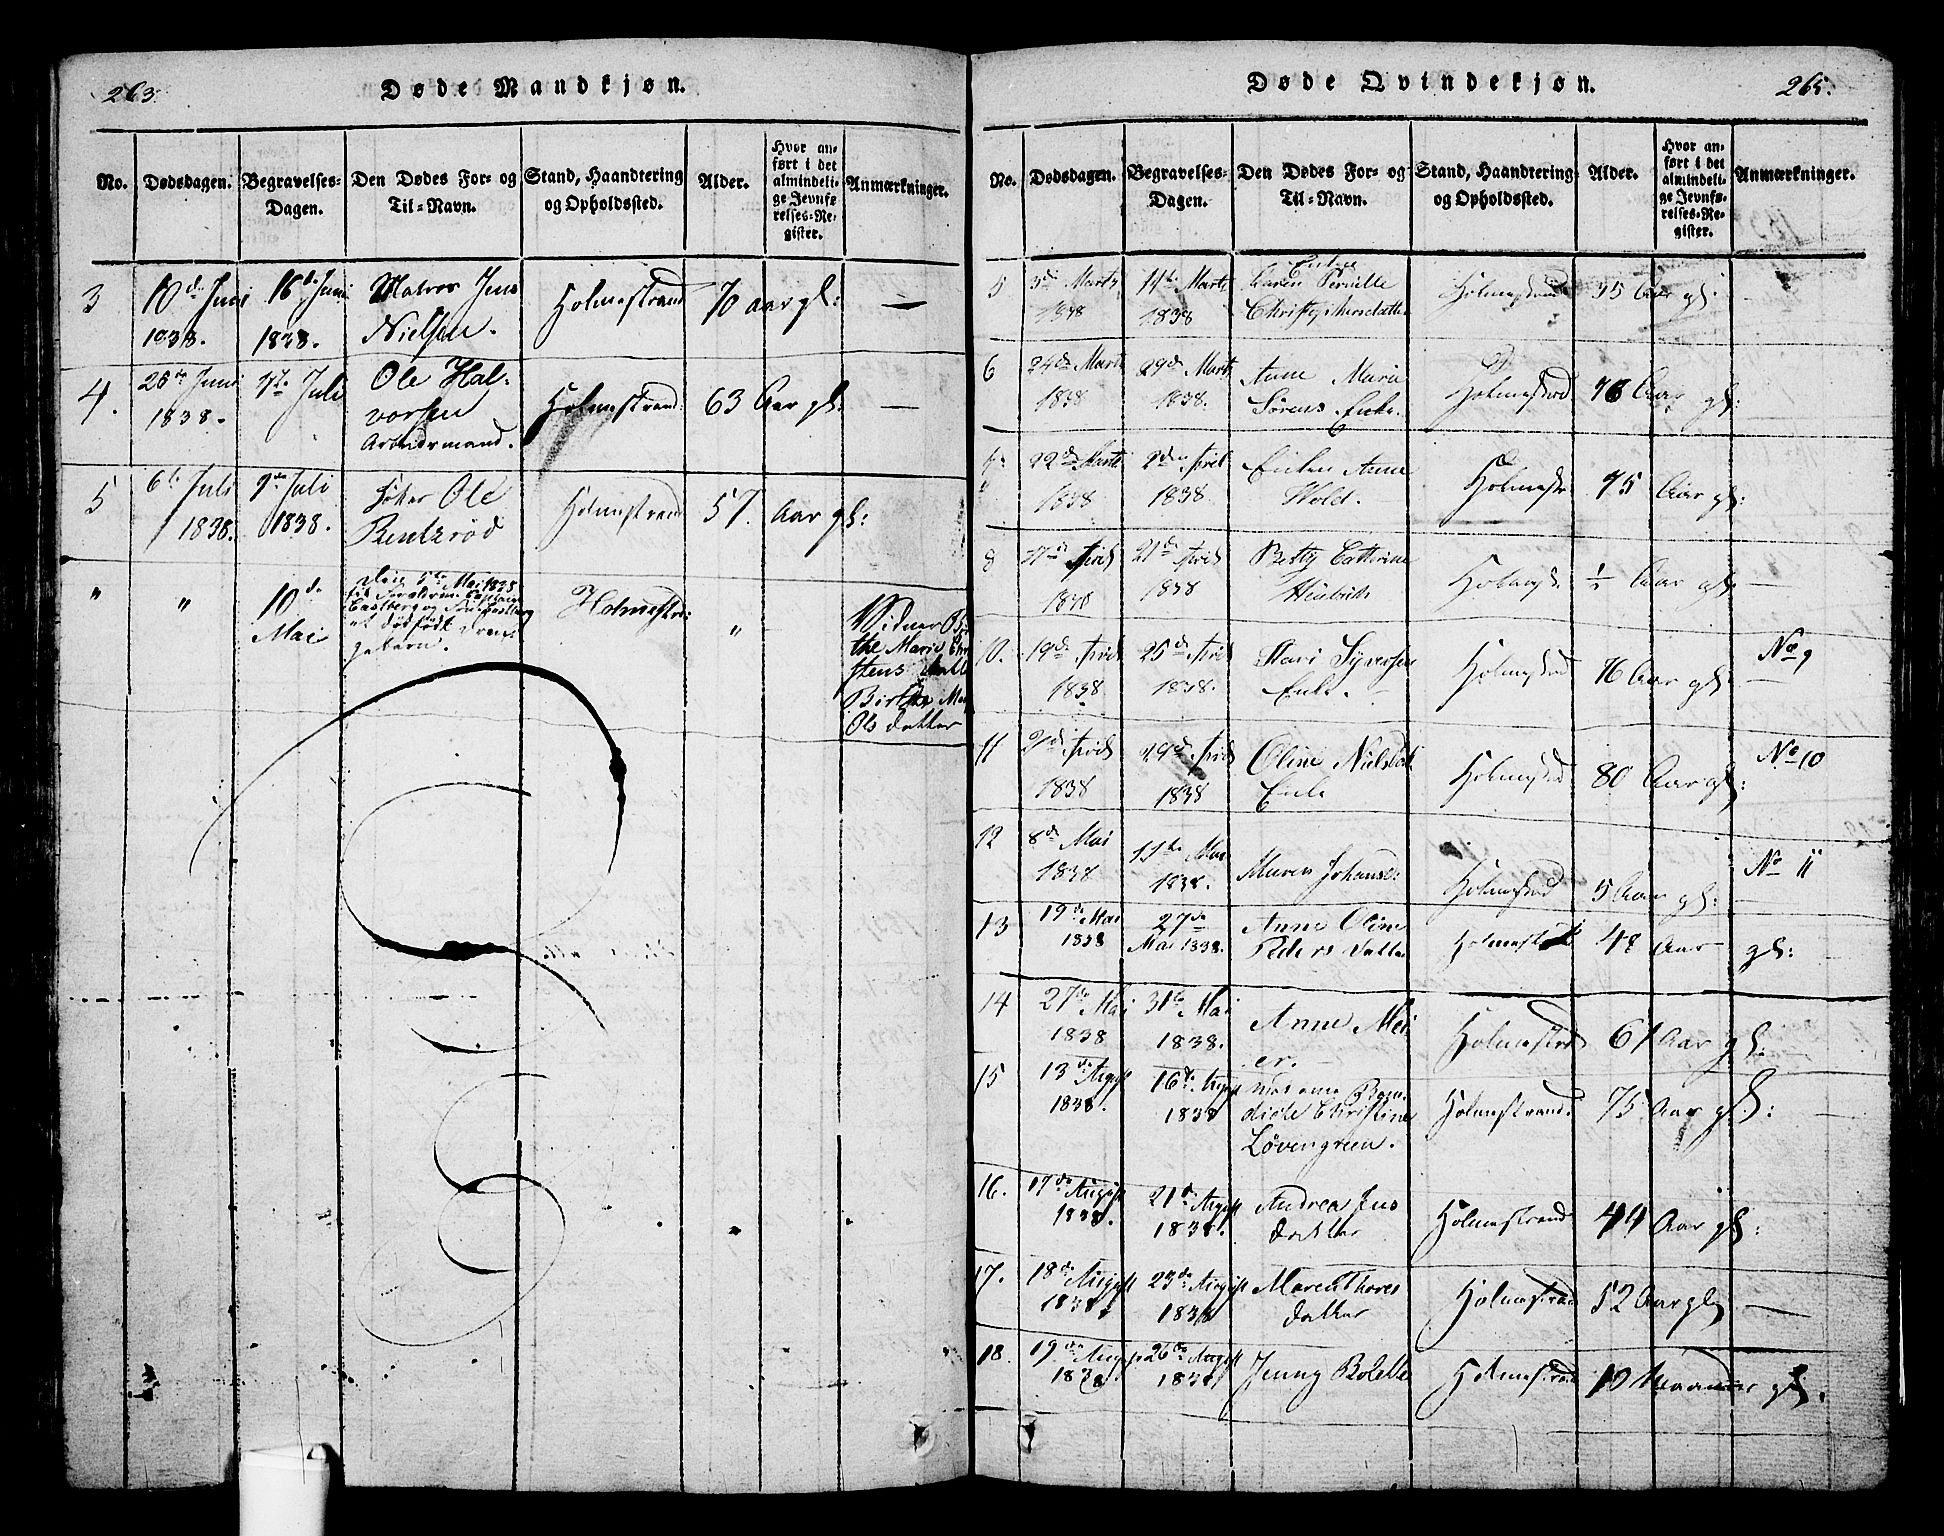 263.
Døde Mandkjøn.
No. Dødsdagen. Begravelses-Dagen. Den Dødes For- og Til-Navn. Stand, Haandtering og Opholdssted. Alder. Hvor anført i det almindelige Jevnførelses-Register. Anmærkninger.
3 10de Juni 16de Juni Matros Jens Holmestrand 70 Aar gl: —
1838. 1838. Nielsen.
4. 26de Juni 1ste Juli Ole Hal- Holmestrand 63 Aar gl: —
1838. vorsen
Arbeidsmand.
5 6te Juli 9de Juli Ole Holmestrand 57. Aar gl:
1838. 1838. Rentzrød
" " 10de Den 5te Mai 1838 Holmestr: "
Mai
et dødfødt Drenge-
gebarn.
Vidner
the Marie
stens Datter
Birthe
Ols datter
265.
Døde Qvindekjøn.
No. Dødsdagen. Begravelses-Dagen. Den Dødes For- og Til-Navn. Stand, Haandtering og Opholdssted. Alder. Hvor anført i det almindelige Jevnførelses-Register. Anmærkninger.
5 3de Marts 11te Marts Enken Karen Pernille Holmestrand Aar gl:
1838 1838 Christophersdatter
6 24de Marts 29de Marts Anne Maria Holmestrd 76 Aar gl:
1838 1838. Sørens Enke.
7. 22de Marts 2den April Enken Anne Holmestr: 75 Aar gl:
1838 1838 Hold.
8 April 21de April Betty Cathrine Holmestr: ½ Aar gl: —
1838 1838 Hinrichs
10. 19de April 25de April Mari Syversen Holmestrd 76 Aar gl: No 9
1838 1838. Enke. —
11 April 29de April Oline Nielsdat: Holmestrd 80 Aar gl: No 10
1838 1838 Enke
12 8de Mai 11te Mai Maren Johanse: Holmestrd 5 Aar gl: No 11
1838 1838. —
13 19de Mai 27de Anne Oline Holmestrd 48 Aar gl:
1838 Mai 1838. Peders Datter
14 27de Mai 31te Mai Anne Mei- Holmestrd 61 Aar gl:
1838 1838. er. —
15 13de August 16de August Madame Ben- Holmestrand. 75 Aar gl:
1838. 1838 dicte Christine
Løvengreen.
16. 17de August 21de August Andrea Jens Holmestrand 44 Aar gl:
1838. 1838. datter
17. 18de August 23de August Maren Thores Holmestrand 52 Aar gl —
1838. 1838 datter
18. 19de August 26de August Jenny Bolette Holmestrand 10 Maaneder gl.
1838 1838